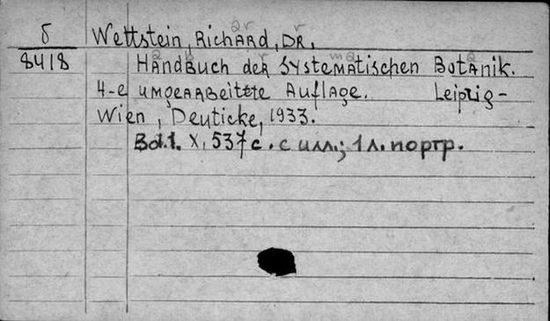 δ Wettstein, Richard, Dr.
8418 Handbuch der systematischen Botanik.
4-e umgearbeitete Auflage. Leipzig-
Wien, Deuticke, 1933.
Bd.1. X, 537 с. с илл.; 1 л. портр.